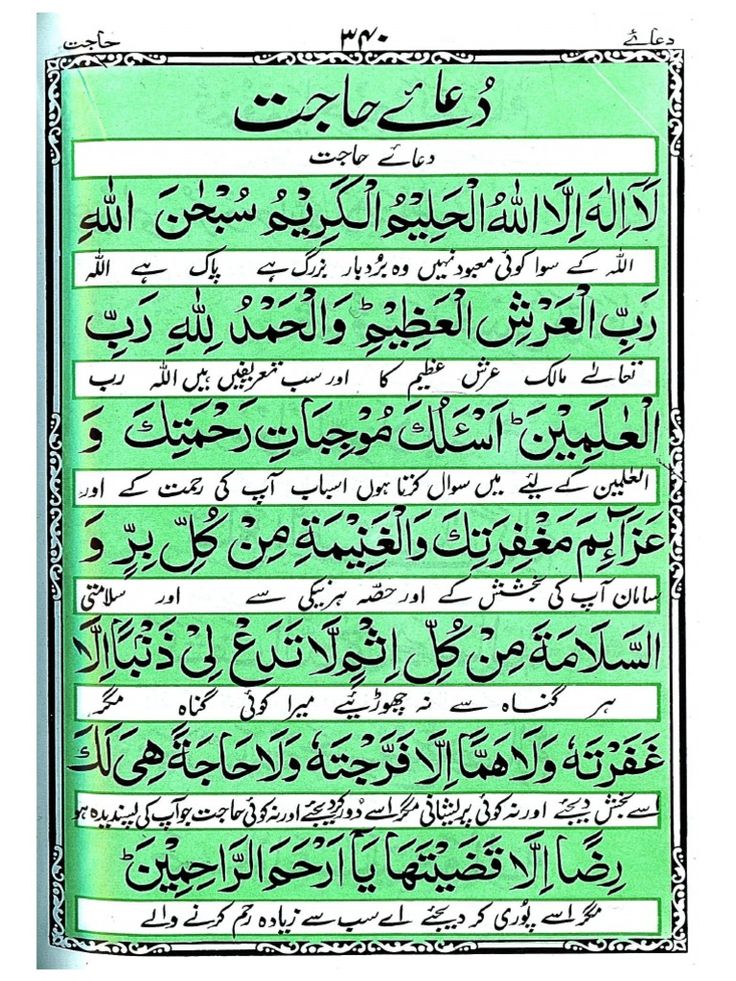 دعائے ۳۴۰ حاجت
دُعائے حاجت
دعائے حاجت
لَآ اِلٰهَ اِلَّا اللّٰهُ الْحَلِيْمُ الْكَرِيْمُ سُبْحٰنَ اللّٰهِ
اللہ کے سوا کوئی معبود نہیں وہ بردبار بزرگ ہے پاک ہے اللہ
رَبِّ الْعَرْشِ الْعَظِيْمِ ؕ وَالْحَمْدُ لِلّٰهِ رَبِّ
تعالےٰ مالک عرش عظیم کا اور سب تعریفیں ہیں اللہ رب
الْعٰلَمِيْنَ ؕ اَسْئَلُكَ مُوْجِبَاتِ رَحْمَتِكَ وَ
العٰلمین کے لیئے میں سوال کرتا ہوں اسباب آپ کی رحمت کے اور
عَزَآئِمَ مَغْفِرَتِكَ وَالْغَنِيْمَةِ مِنْ كُلِّ بِرٍّ وَ
سامان آپ کی بخشش کے اور حصّہ ہر نیکی سے اور سلامتی
السَّلَامَةَ مِنْ كُلِّ اِثْمٍ لَّا تَدَعْ لِىْ ذَنْۢبًا اِلَّا
ہر گناہ سے نہ چھوڑیئے میرا کوئی گناہ مگر
غَفَرْتَهٗ وَلَا هَمًّا اِلَّا فَرَّجْتَهٗ وَلَا حَاجَةً هِىَ لَكَ
اسے بخش دیجئے اور نہ کوئی پریشانی مگر اسے دور کر دیجئے اور نہ کوئی حاجت جو آپ کی پسندیدہ ہو
رِضًا اِلَّا قَضَيْتَهَا يَآ اَرْحَمَ الرَّاحِمِيْنَ ؕ
مگر اسے پوری کر دیجئے اے سب سے زیادہ رحم کرنے والے